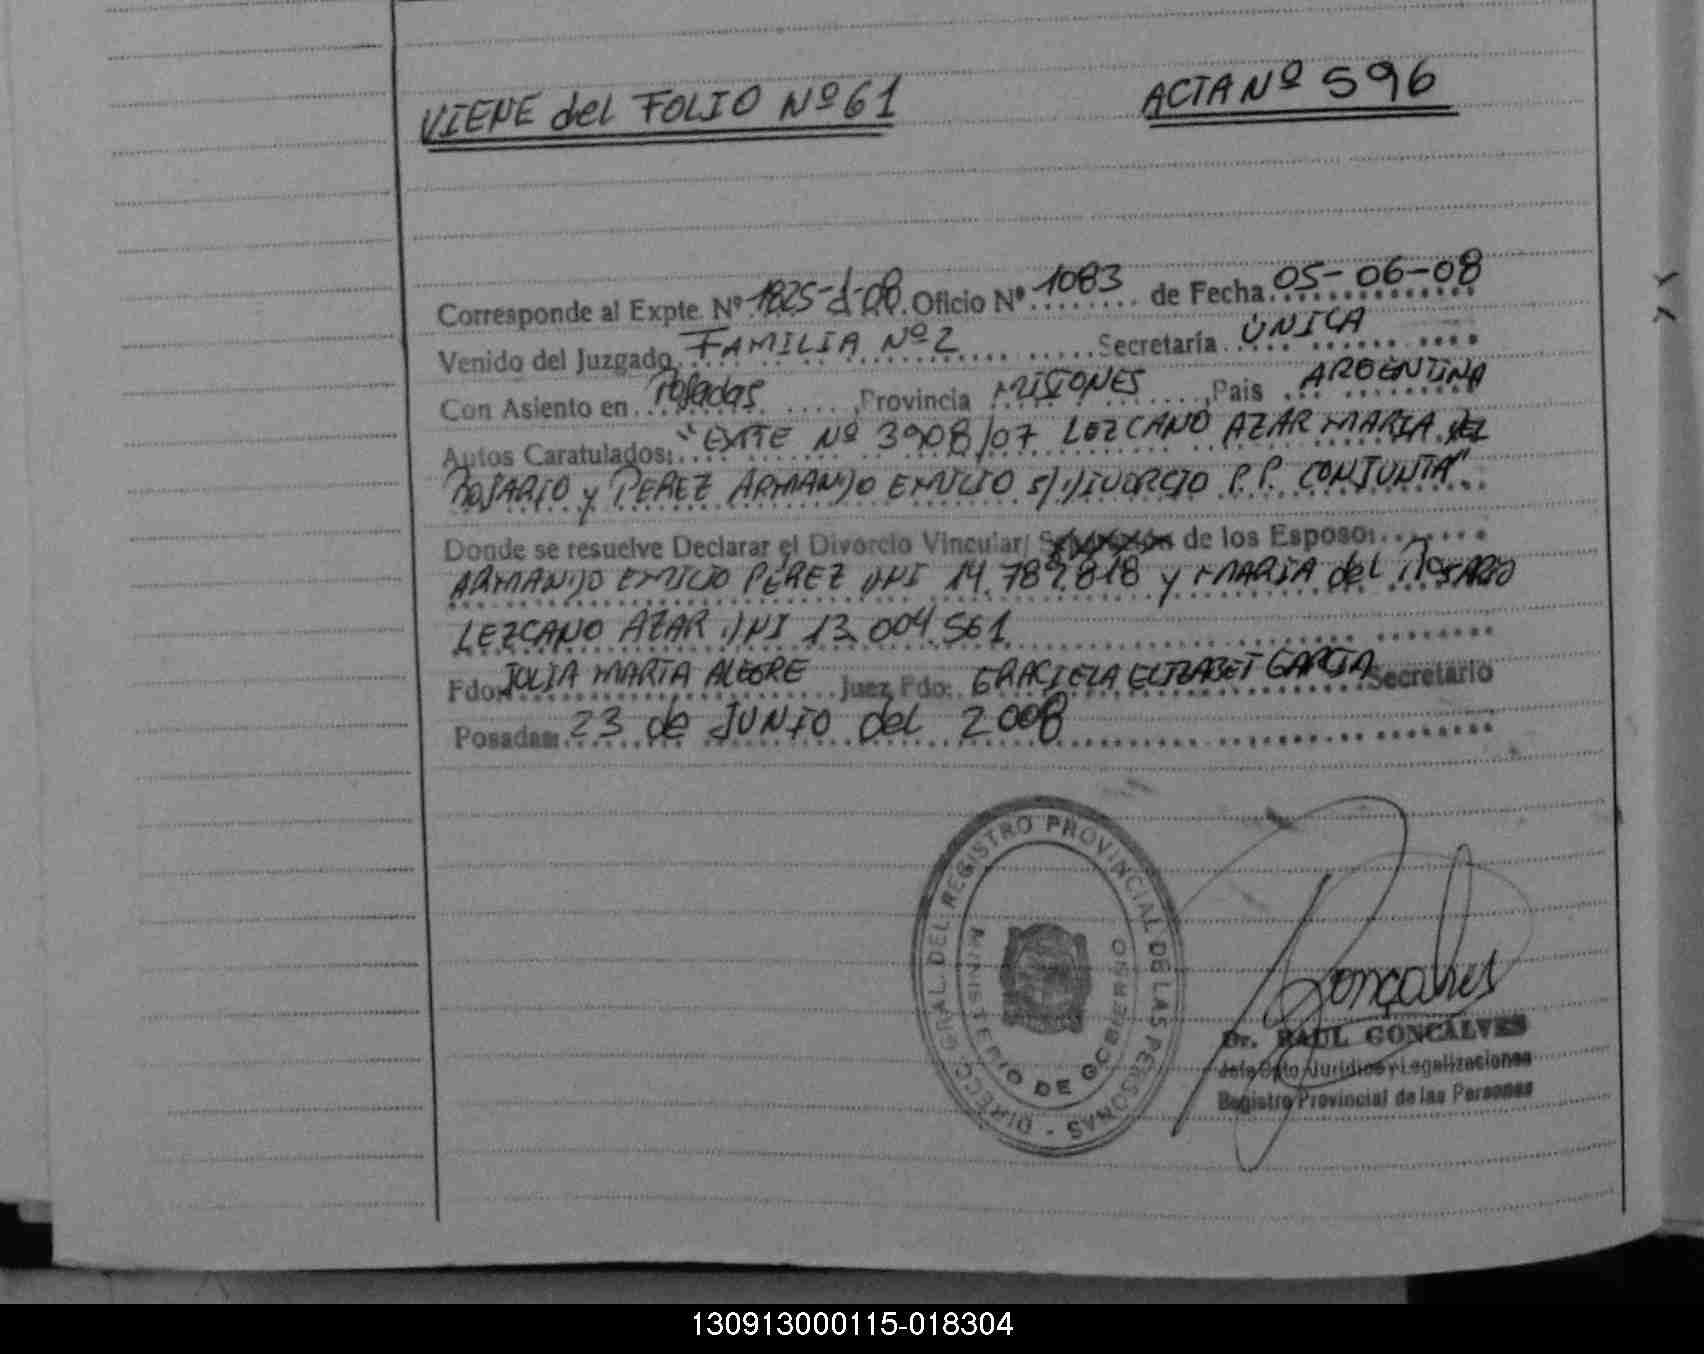 VIENE del FOLIO Nº 61
ACTA Nº 596
Corresponde al Expte. Nº 1825-d-08. Oficio Nº 1083 de Fecha 05-06-08
Venido del Juzgado FAMILIA Nº 2 Secretaría ÚNICA
Con Asiento en Posadas, Provincia MISIONES, Pais ARGENTINA
Autos Caratulados: "EXPTE Nº 3908/07 LEZCANO AZAR MARIA DEL
ROSARIO y PEREZ ARMANDO EMILIO S/ DIVORCIO P.P. CONJUNTA"
Donde se resuelve Declarar el Divorcio Vincular/ de los Esposo:
ARMANDO EMILIO PEREZ DNI 14.789.818 y MARIA del ROSARIO
LEZCANO AZAR DNI 13.004.561
Fdo: JULIA MARTA ALEGRE Juez Fdo: GRACIELA ELIZABET GARCIA Secretario
Posadas: 23 de JUNIO del 2008
DIRECC. GRAL. DEL REGISTRO PROVINCIAL DE LAS PERSONAS -
MINISTERIO DE GOBIERNO
Gonçalves
Dr. RAUL GONCALVES
Jefe Dpto. Jurídico y Legalizaciones
Registro Provincial de las Personas
130913000115-018304